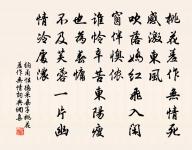 桃花羞作無情死
感激東風
吹落嬌紅飛入閑
窗伴懊儂
誰憐辛苦東陽瘦
也為春慵
不及芙蓉一片幽
情冷處濃
納蘭性德采桑子桃花
羞作無情死